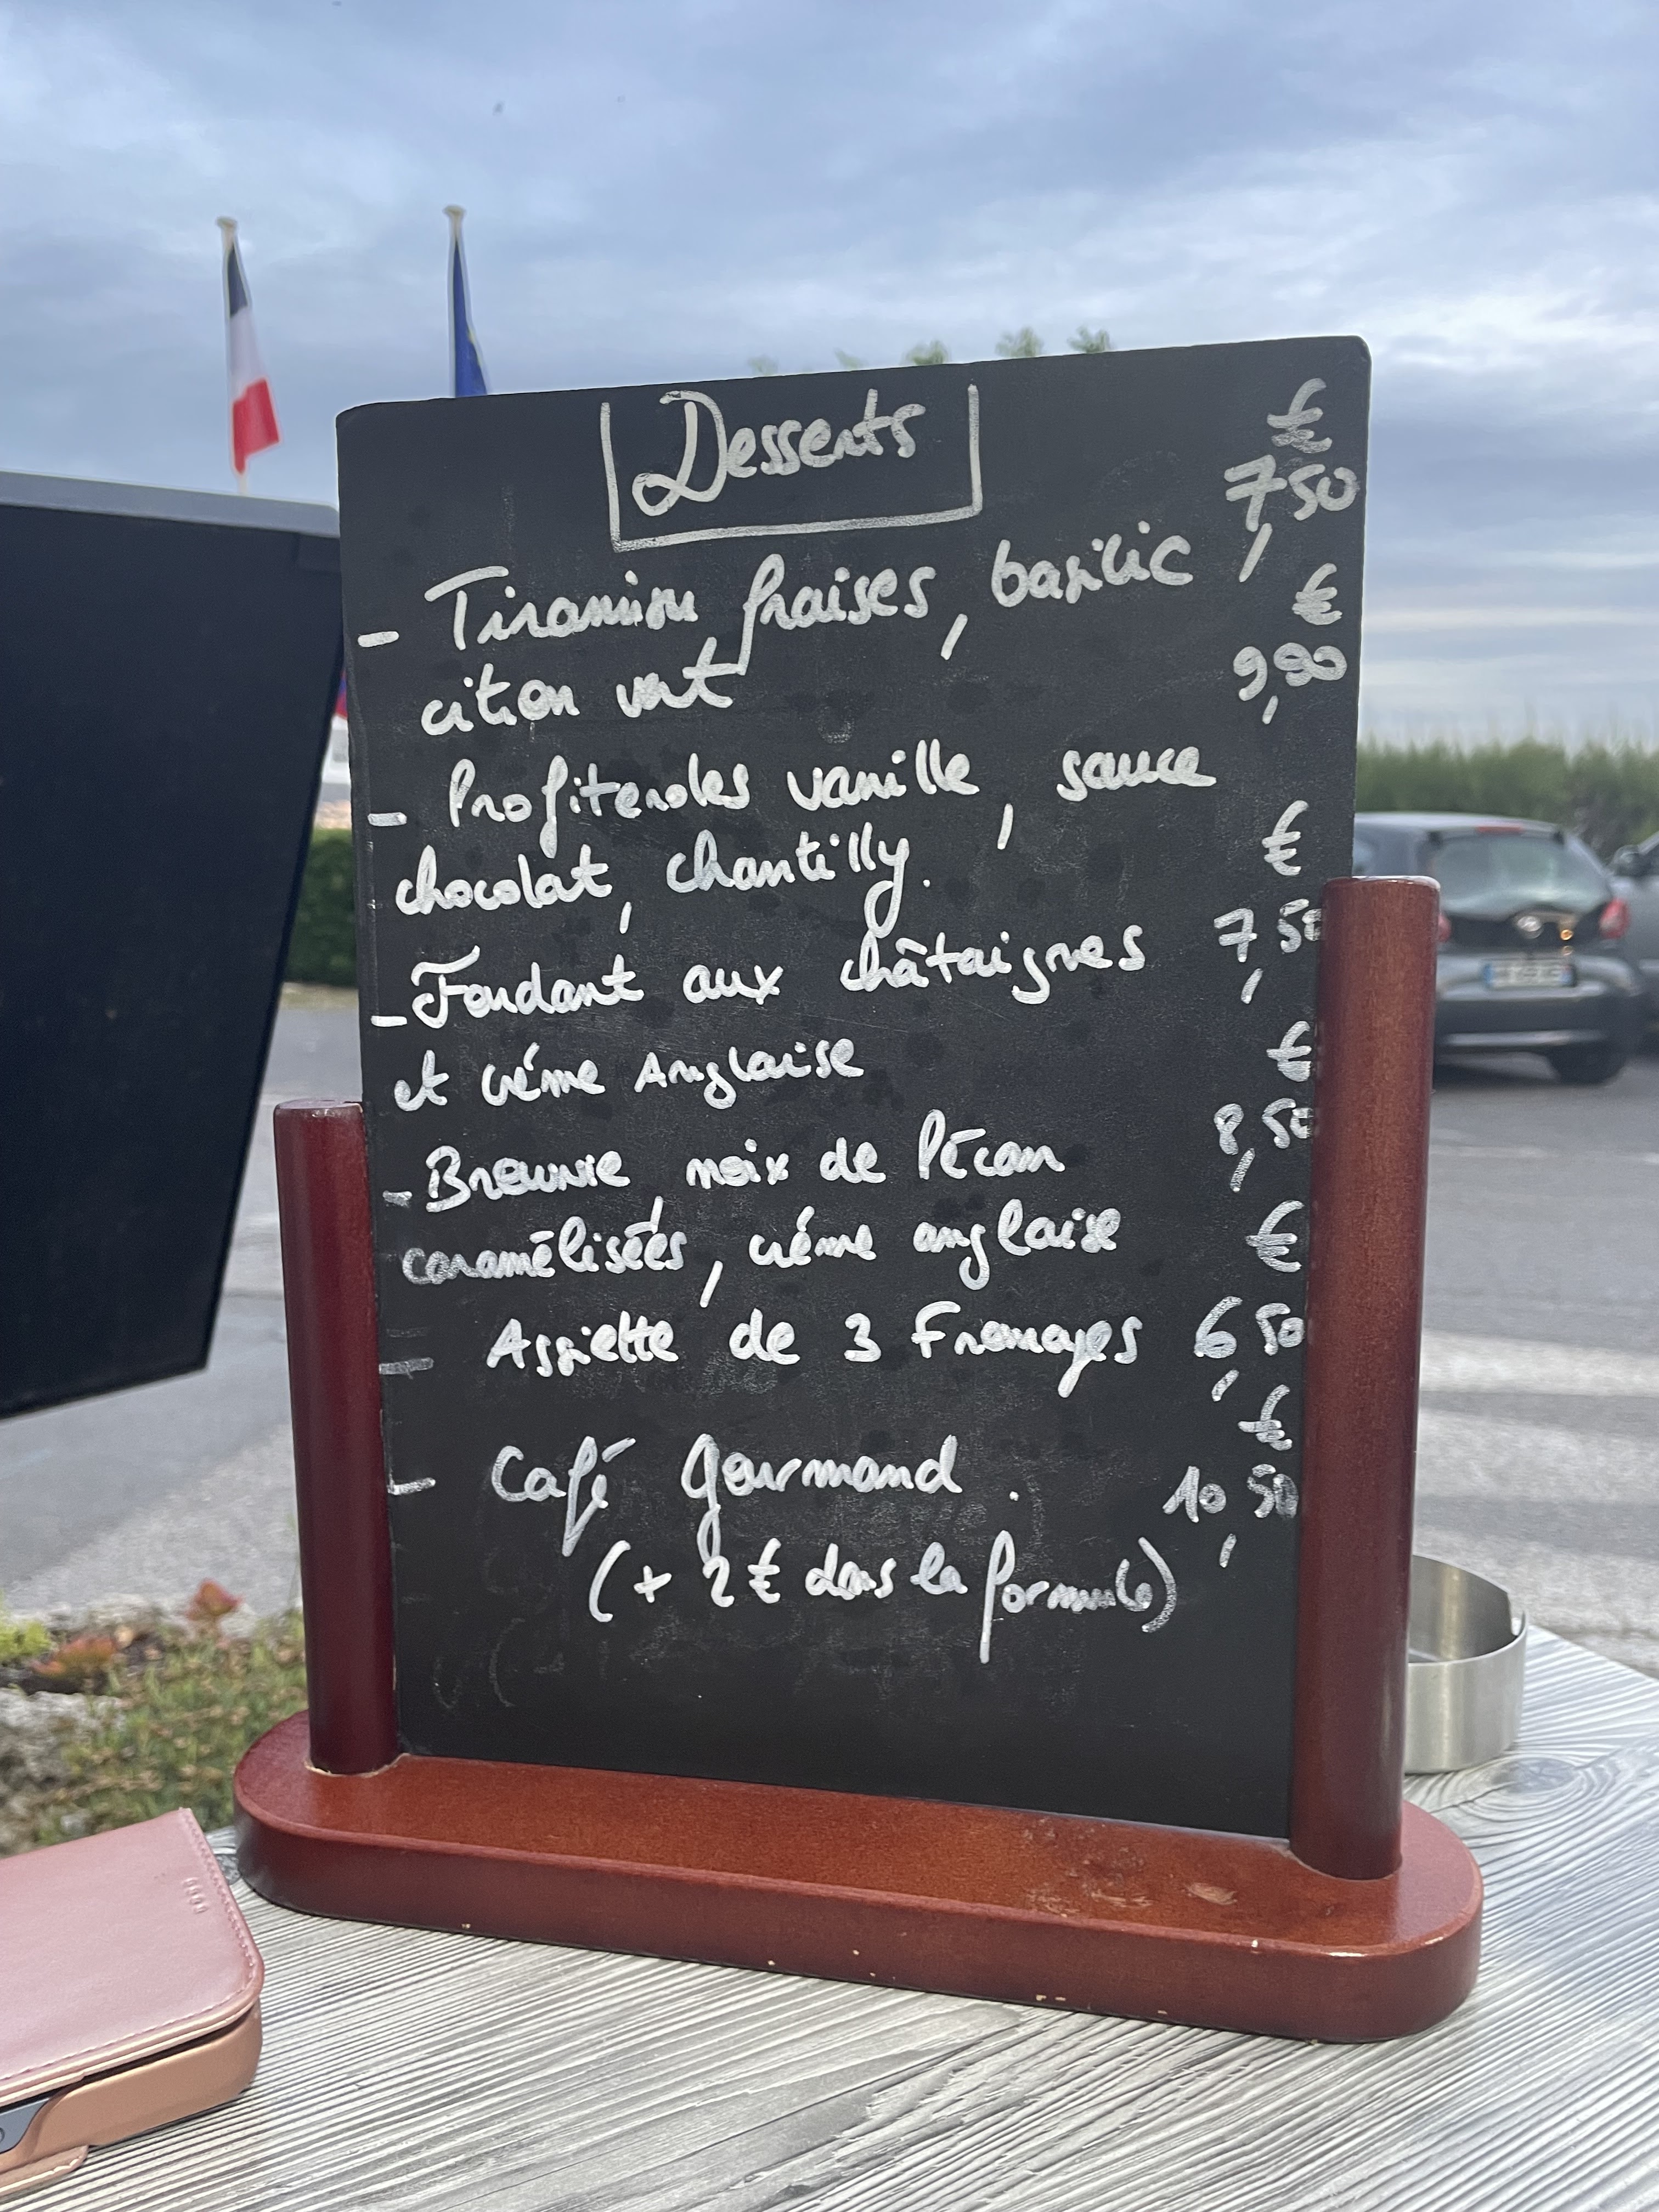 Desserts
€
7,50
- Tiramisu fraises, basilic
citron vert
€
9,90
- Profiteroles vanille, sauce
chocolat, chantilly.
€
7,50
- Fondant aux châtaignes
et créme Anglaise
€
8,50
- Brownie, noix de Pécan
caramélisées, créme anglaise
€
- Assiette de 3 Fromages 6,50
€
- Café gourmand. 10,50
(+ 2€ dans la formule)